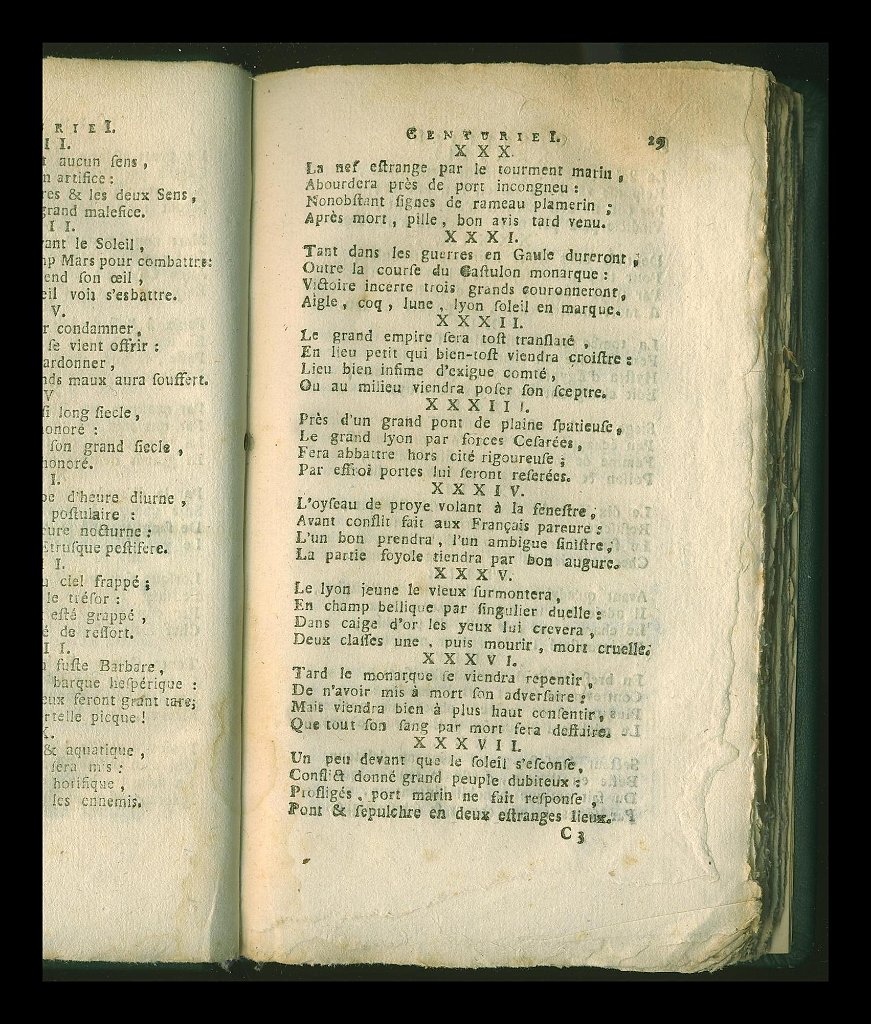 R I E I.
I I.
aucun ſens ,
n artifice :
res & les deux Sens ,
grand malefice.
I I.
vant le Soleil ,
np Mars pour combattre:
end ſon œil ,
eil vois s'esbattre.
V.
r condamner,
ſe vient offrir :
ardonner ,
nds maux aura ſouffert.
V
ſi long ſiecle ,
onoré :
ſon grand ſiecle ,
honoré.
I.
pe d'heure diurne ,
poſtulaire :
eure nocturne :
Etruſque peſtifere.
I.
u ciel frappé ;
le tréſor :
eſté grappé ,
é de reſſort.
I I.
fuſte Barbare ,
barque heſpérique :
eux ſeront grant tare;
rtelle picque !
X.
& aquatique ,
ſera mis :
horifique ,
ſes ennemis.
CENTURIE I. 29
X X X.
La nef eſtrange par le tourment marin ,
Abourdera près de port incongneu :
Nonobſtant ſignes de rameau plamerin ;
Après mort , pille , bon avis tard venu.
X X X I.
Tant dans les guerres en Gaule dureront ;
Outre la courſe du Caſtulon monarque :
Victoire incerte trois grands couronneront,
Aigle , coq , lune , lyon ſoleil en marque.
X X X I I.
Le grand empire ſera toſt tranſlaté ,
En lieu petit qui bien-toſt viendra croiſtre :
Lieu bien infime d'exigue comté ,
Ou au milieu viendra poſer ſon ſceptre.
X X X I I I.
Près d'un grand pont de plaine ſpatieuſe,
Le grand lyon par forces Ceſarées ,
Fera abbattre hors cité rigoureuſe ;
Par effroi portes lui ſeront reſerées.
X X X I V.
L'oyſeau de proye volant à la feneſtre ,
Avant conflit fait aux Français pareure :
L'un bon prendra , l'un ambigue ſiniſtre ,
La partie foyole tiendra par bon augure.
X X X V.
Le lyon jeune le vieux ſurmontera ,
En champ bellique par ſingulier duelle :
Dans caige d'or les yeux lui crevera ,
Deux claſſes une , puis mourir , mort cruelle.
X X X V I.
Tard le monarque ſe viendra repentir ,
De n'avoir mis à mort ſon adverſaire :
Mais viendra bien à plus haut conſentir ,
Que tout ſon ſang par mort ſera deffaire.
X X X V I I.
Un peu devant que le ſoleil s'eſconſe ,
Conflict donné grand peuple dubiteux :
Profligés , port marin ne fait reſponſe ,
Pont & ſepulchre en deux eſtranges lieux.
C 3